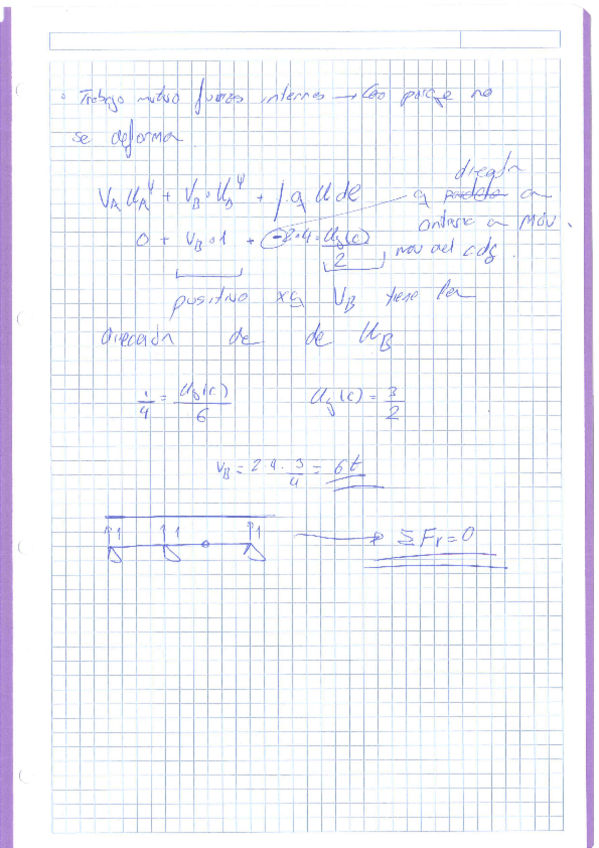 • Trabajo mutuo fuerzas internas → Cero porque no
se deforma.
V_A U_A^ψ + V_B · U_B^ψ + ∫ q U de
dirección
q paralela a
contraria a mov.
0 + V_B · 1 + (−2·4 · U_y(c)/2
mov del adj.
positivo xq V_B tiene la
dirección de de U_B
1/4 = U_y(c)/6 U_y(c) = 3/2
V_B = 2·4·3/4 = 6t
↑1 ↑1 ↑1 → ΣF_V = 0